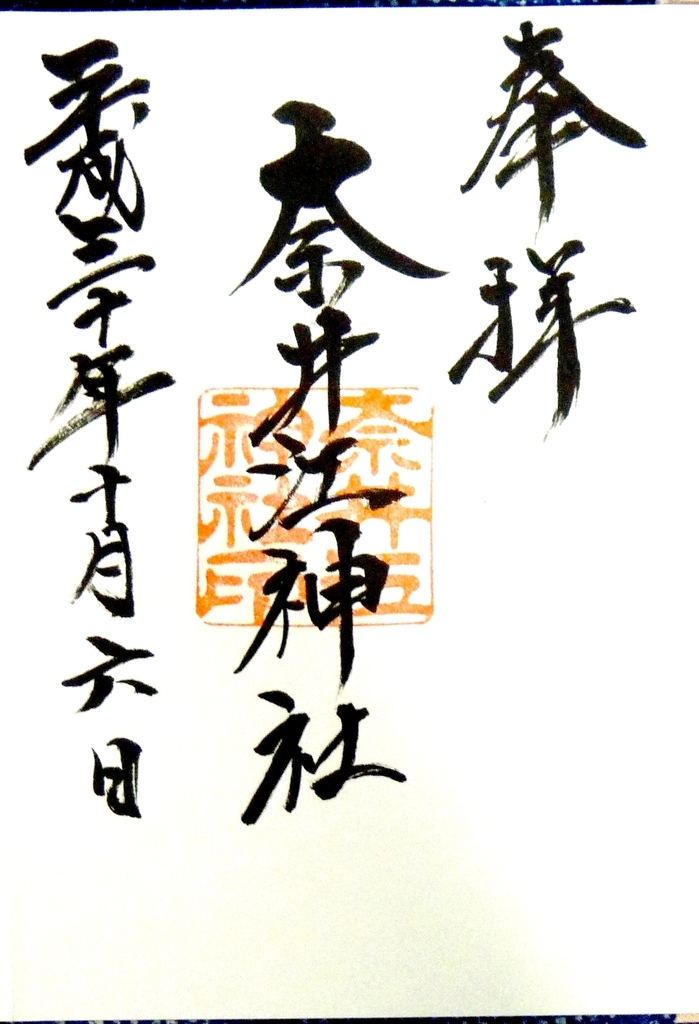 奉拝
奈井江神社
奈井江
神社印
平成三十年十月六日